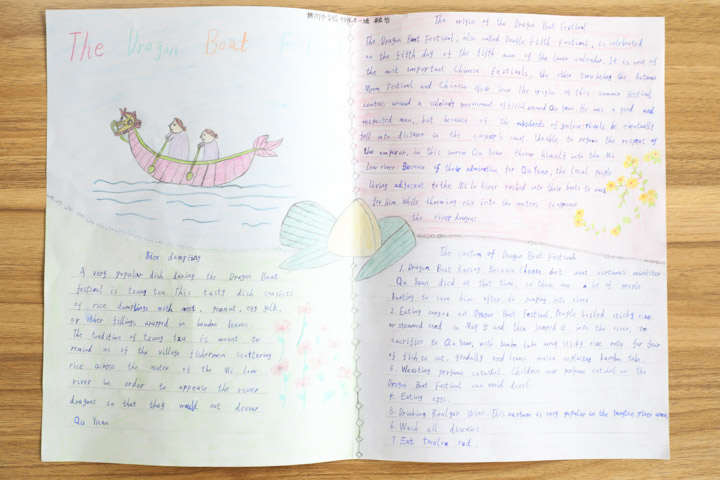 The Dragon Boat Festival
Rice dumpling
A very popular dish during the Dragon Boat
festival is tzung tzu. This tasty dish consists
of rice dumplings with meat, peanut, egg yolk,
or other fillings wrapped in bamboo leaves.
The tradition of tzung tzu is meant to
remind us of the village fishermen scattering
rice across the water of the Mi Low
river in order to appease the river
dragons so that they would not devour
Qu Yuan.
The origin of the Dragon Boat Festival
The Dragon Boat Festival, also called Double Fifth Festival, is celebrated
on the fifth day of the fifth moon of the lunar calendar. It is one of
the most important Chinese festivals, the other two being the Autumn
Moon Festival and Chinese New Year. The origin of this summer festival
centers around a scholarly government official named Qu Yuan. He was a good and
respected man, but because of the misdeeds of jealous rivals he eventually
fell into disfavor in the emperor's court. Unable to regain the respect of
the emperor, in this sorrow Qu Yuan threw himself into the Mi
Low river. Because of their admiration for Qu Yuan, the local people
living adjacent to the Mi Lo River rushed into their boats to
for him while throwing rice into the waters to appease
the river dragons.
The custom of Dragon Boat Festival
1. Dragon Boat Racing. Because Chu
virtuous minister
Qu Yuan died at that time, so there are a lot of people
boating to save him after he jumping into river.
2. Eating
on Dragon Boat Festival. People boiled sticky rice
or steamed
on May 5 and then
it into the river, to
sacrifice to Qu Yuan, with bamboo tube
sticky rice
for four
of fish to eat, gradually
leaves
replacing bamboo tube.
3. Wearing perfume satchel. Children wear perfume satchel on the
Dragon Boat Festival can avoid devil.
4. Eating eggs.
5. Drinking Realgar Wine. This custom is very popular in the Yangtze river
6. Wash all diseases.
7. Eat twelve red.